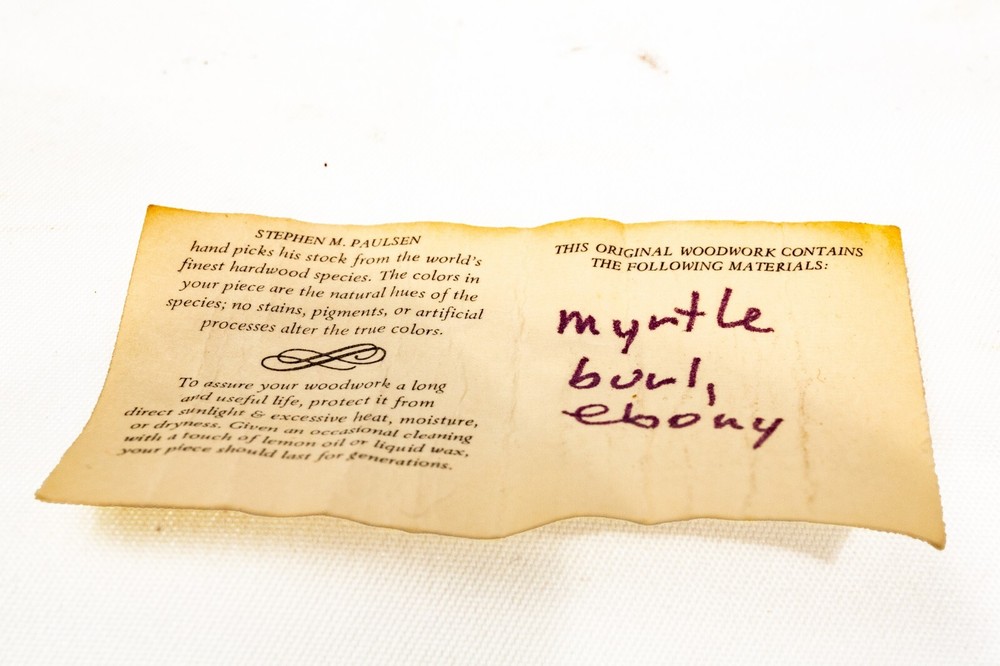 STEPHEN M. PAULSEN
hand picks his stock from the world's
finest hardwood species. The colors in
your piece are the natural hues of the
species; no stains, pigments, or artificial
processes alter the true colors.
To assure your woodwork a long
and useful life, protect it from
direct sunlight & excessive heat, moisture,
or dryness. Given an occasional cleaning
with a touch of lemon oil or liquid wax,
your piece should last for generations.
THIS ORIGINAL WOODWORK CONTAINS
THE FOLLOWING MATERIALS:
myrtle
burl,
ebony